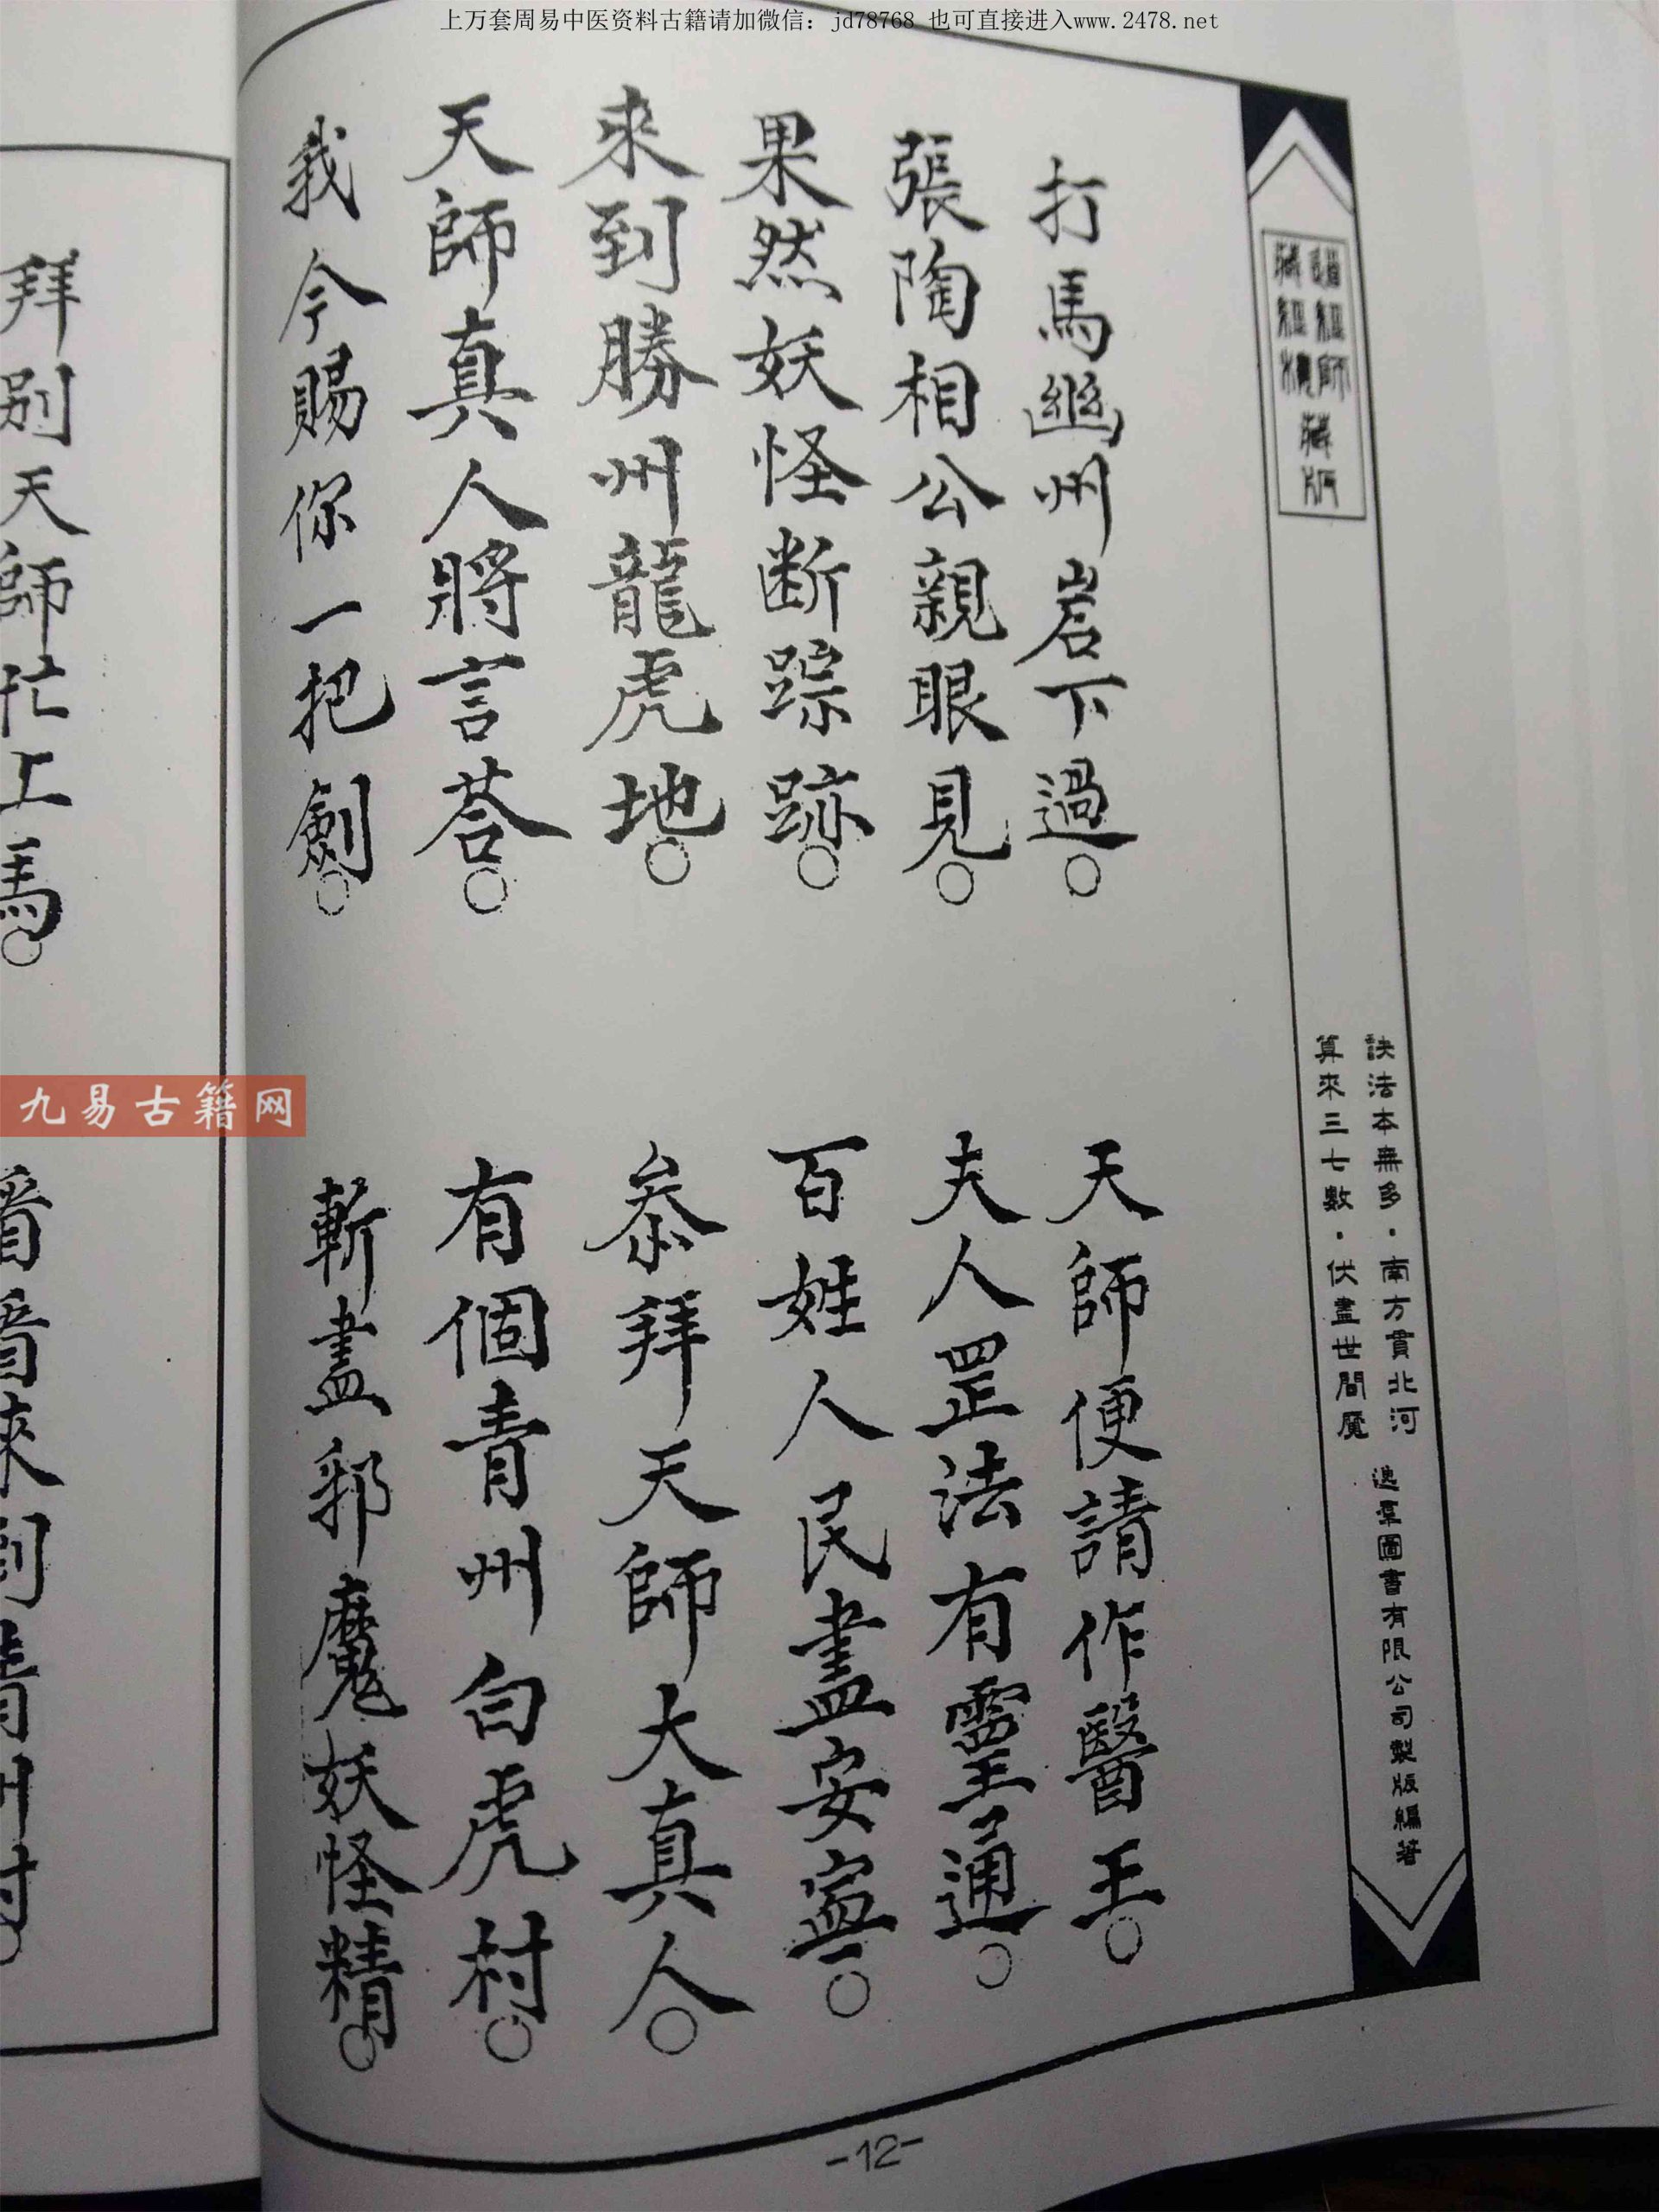 上万套周易中医资料古籍请加微信：jd78768 也可直接进入www.2478.net
道經師藏版
藏經樓
訣法本無多·南方貫北河
算來三七數·伏盡世間魔
逸羣圖書有限公司製版編著
打馬幽州岩下過○
天師便請作醫王○
張陶相公親眼見○
夫人罡法有靈通○
果然妖怪断踪跡○
百姓人民盡安寧○
來到勝州龍虎地○
叅拜天師大真人○
天師真人將言荅○
有個青州白虎村○
我今賜你一把劍○
斬盡邪魔妖怪精○
拜别天師忙上馬○
九易古籍网
-12-